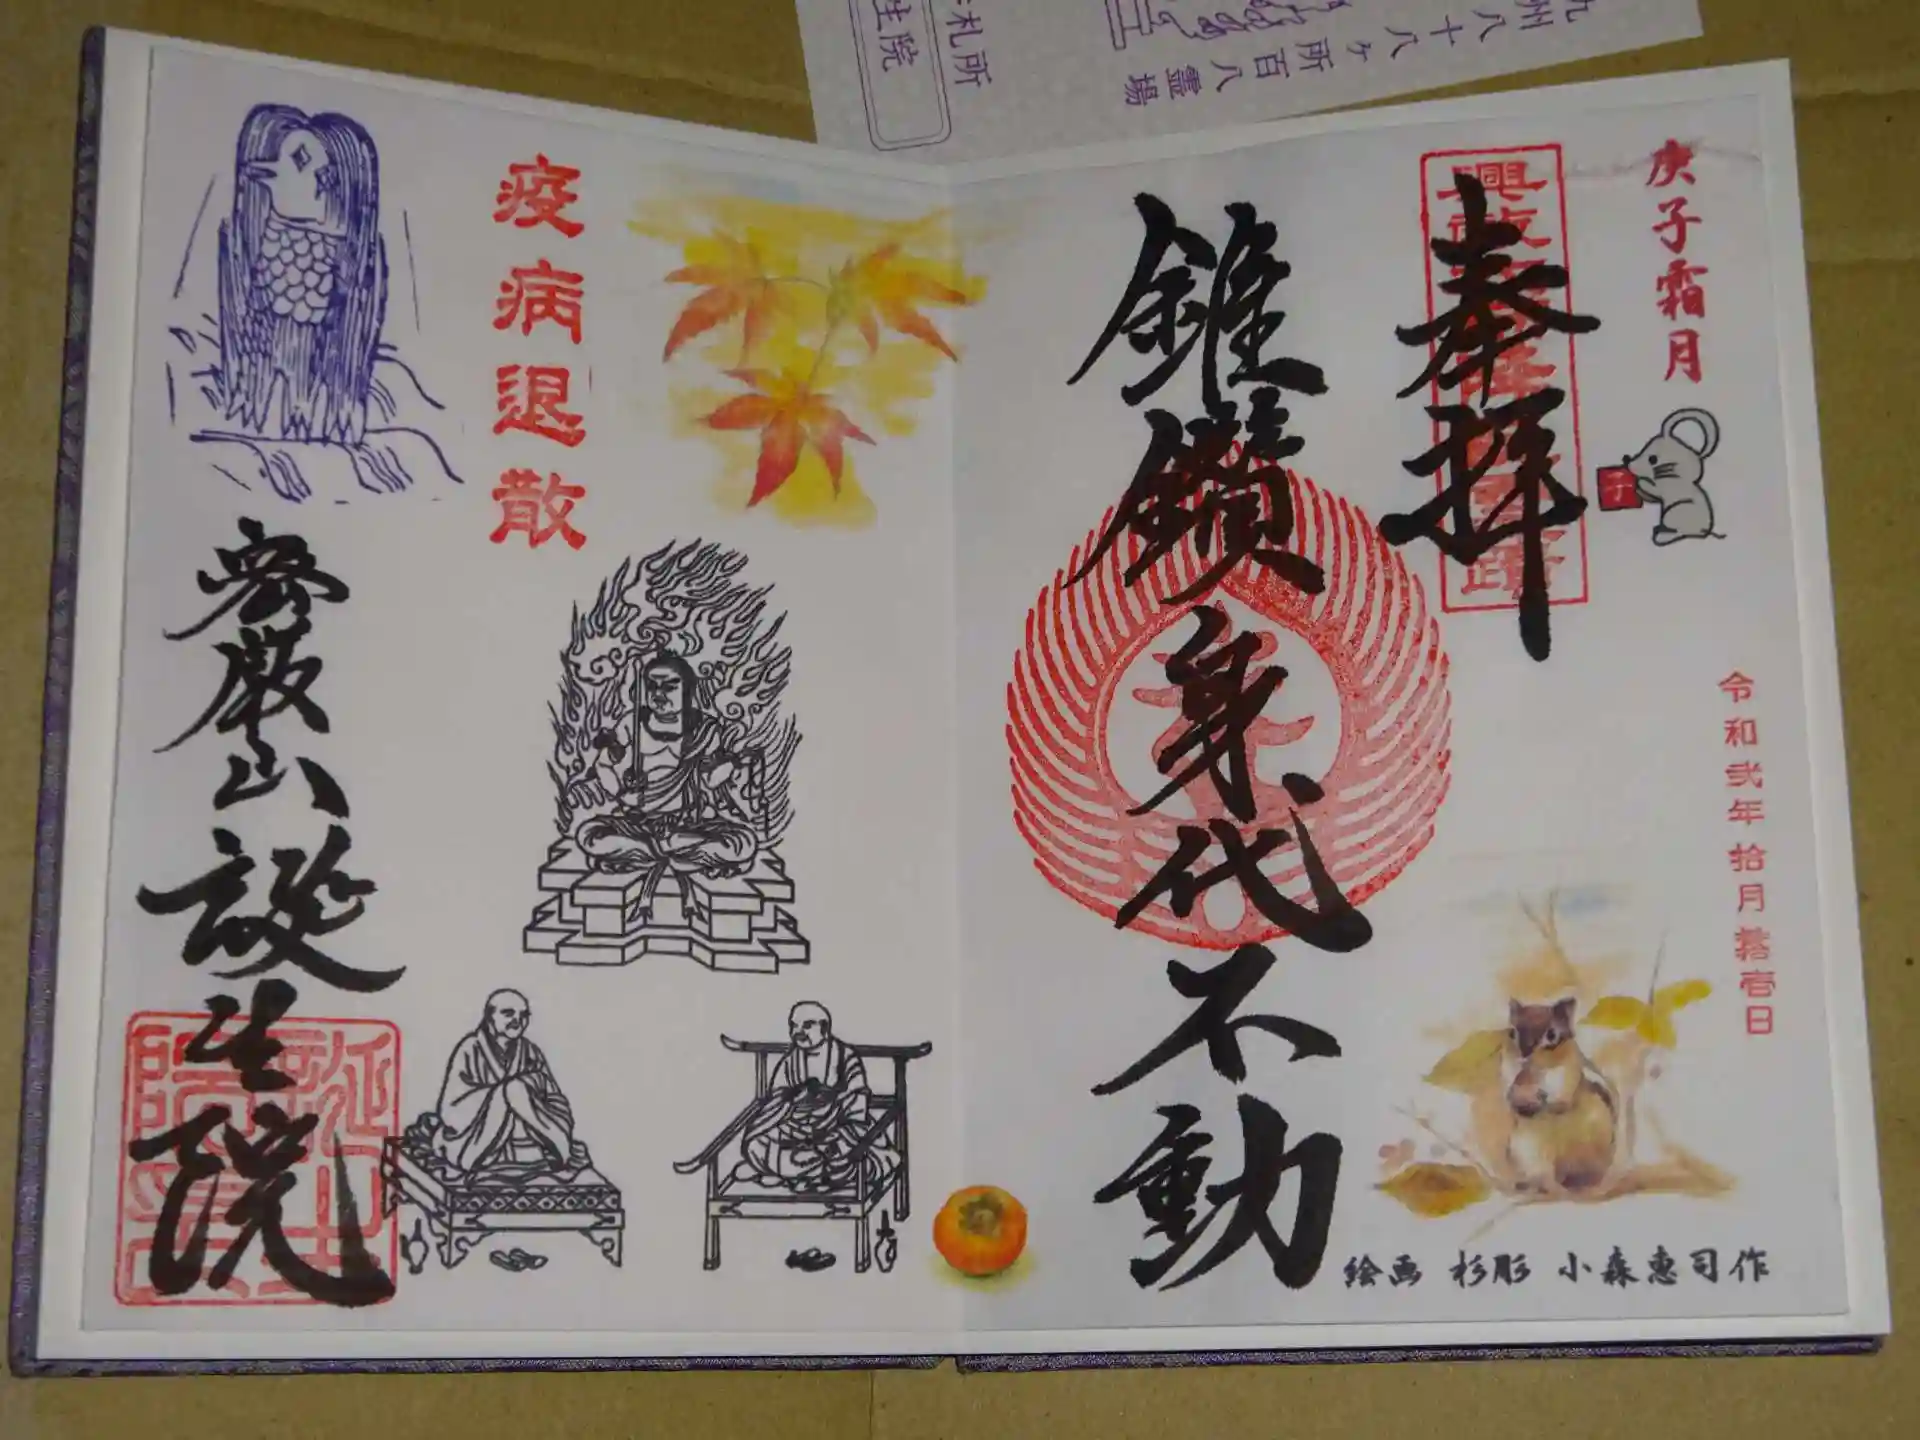 庚子霜月
奉拝
子
令和弐年拾月
壱日
錐鑽身代不動
絵画 杉彫 小森惠司作
疫病退散
密厳山誕生院
札所
生院
九州八十八ヶ所百八霊場